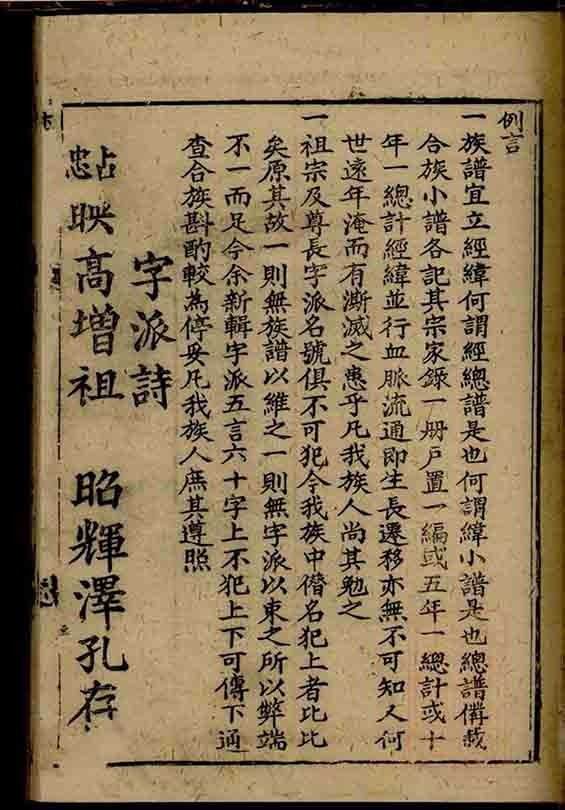 例言
一族譜宜立經緯何謂經總譜是也何謂緯小譜是也總譜備載
合族小譜各記其宗家錄一冊戶置一編或五年一總計或十
年一總計經緯並行血脈流通即生長遷移亦無不可知又何
世遠年淹而有澌滅之患乎凡我族人尚其勉之
一祖宗及尊長字派名號俱不可犯今我族中僭名犯上者比比
矣原其故一則無族譜以維之一則無字派以束之所以弊端
不一而足今余新輯字派五言六十字上不犯上下可傳下通
查合族斟酌較為停妥凡我族人庶其遵照
字派詩
映高增祖 昭輝澤孔存